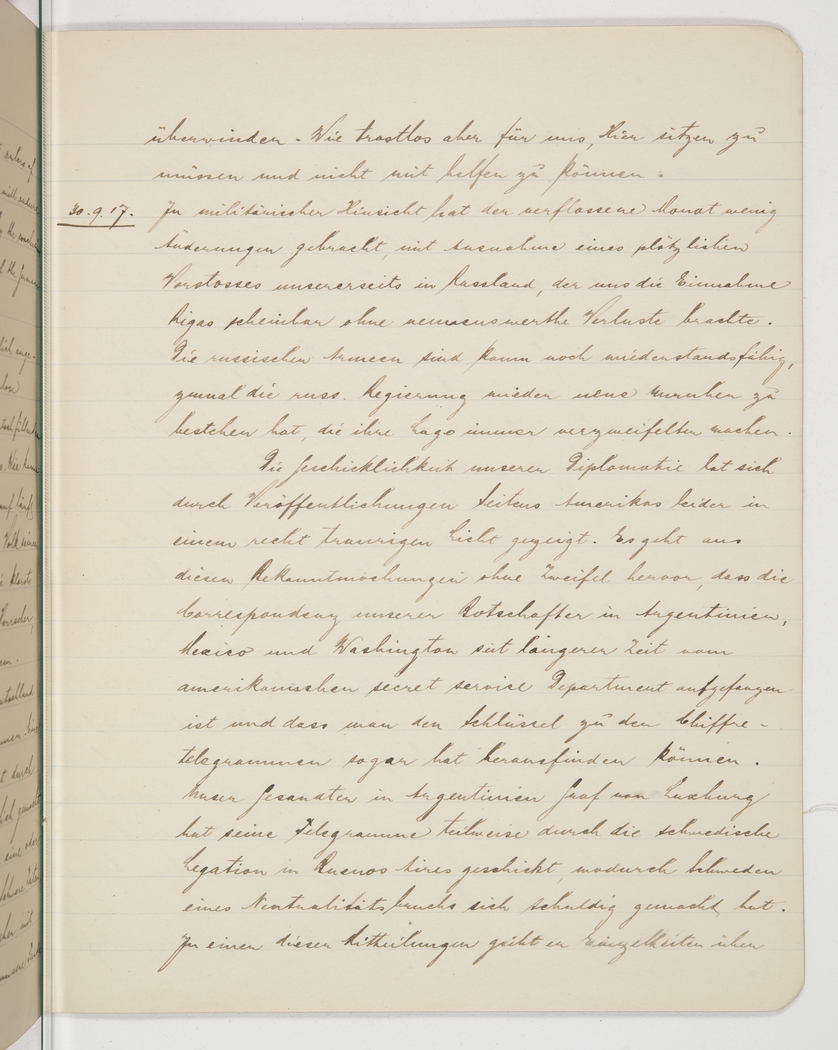 überwinden. Wie trostlos aber für uns, Hier sitzen zu
müssen und nicht mit helfen zu können.
30.9.17. In militärischer Hinsicht hat der verflossene Monat wenig
Änderungen gebracht, mit Ausnahme eines plötzlichen
Vorstosses unsererseits in Russland, der uns die Einnahme
Rigas scheinbar ohne nennenswerthe Verluste brachte.
Die russischen Armeen sind kaum noch wiederstandsfähig,
zumal die russ. Regierung wieder neue Unruhen zu
bestehen hat, die ihre Lage immer verzweifelter machen.
Die Geschicklichkeit unserer Diplomatie hat sich
durch Veröffentlichungen seitens Amerikas leider in
einem recht traurigen Licht gezeigt. Es geht aus
diesen Bekanntmachungen ohne Zweifel hervor, dass die
Correspondenz unserer Botschafter in Argentinien,
Mexico und Washington seit längerer Zeit vom
amerikanischen secret service Department aufgefangen
ist und dass man den Schlüssel zu den Chiffre-
telegrammen sogar hat herausfinden können.
Unser Gesandter in Argentinien Graf von Luxburg
hat seine Telegramme teilweise durch die schwedische
Legation in Buenos Aires geschickt, wodurch Schweden
eines Neutralitätsbruchs sich schuldig gemacht hat.
In einer dieser Mittheilungen giebt er Einzelheiten über